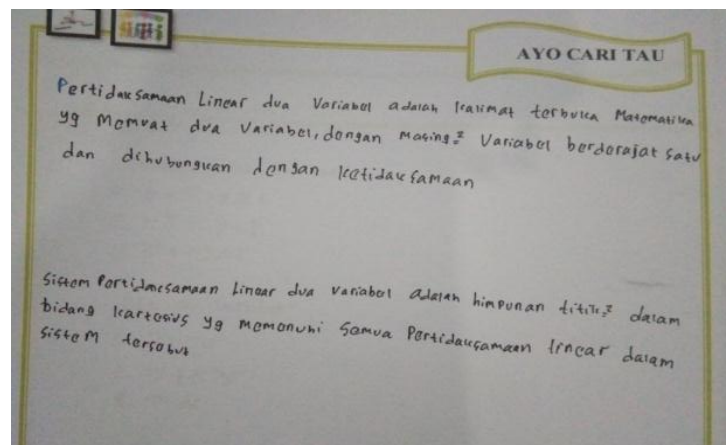 AYO CARI TAU
Pertidaksamaan Linear dua Variabel adalah kalimat terbuka Matematika
yg Memuat dua Variabel, dengan masing² Variabel berderajat satu
dan dihubungkan dengan ketidaksamaan
Sistem Pertidaksamaan Linear dua Variabel adalah himpunan titik² dalam
bidang kartesius yg memenuhi Semua Pertidaksamaan linear dalam
sistem tersebut